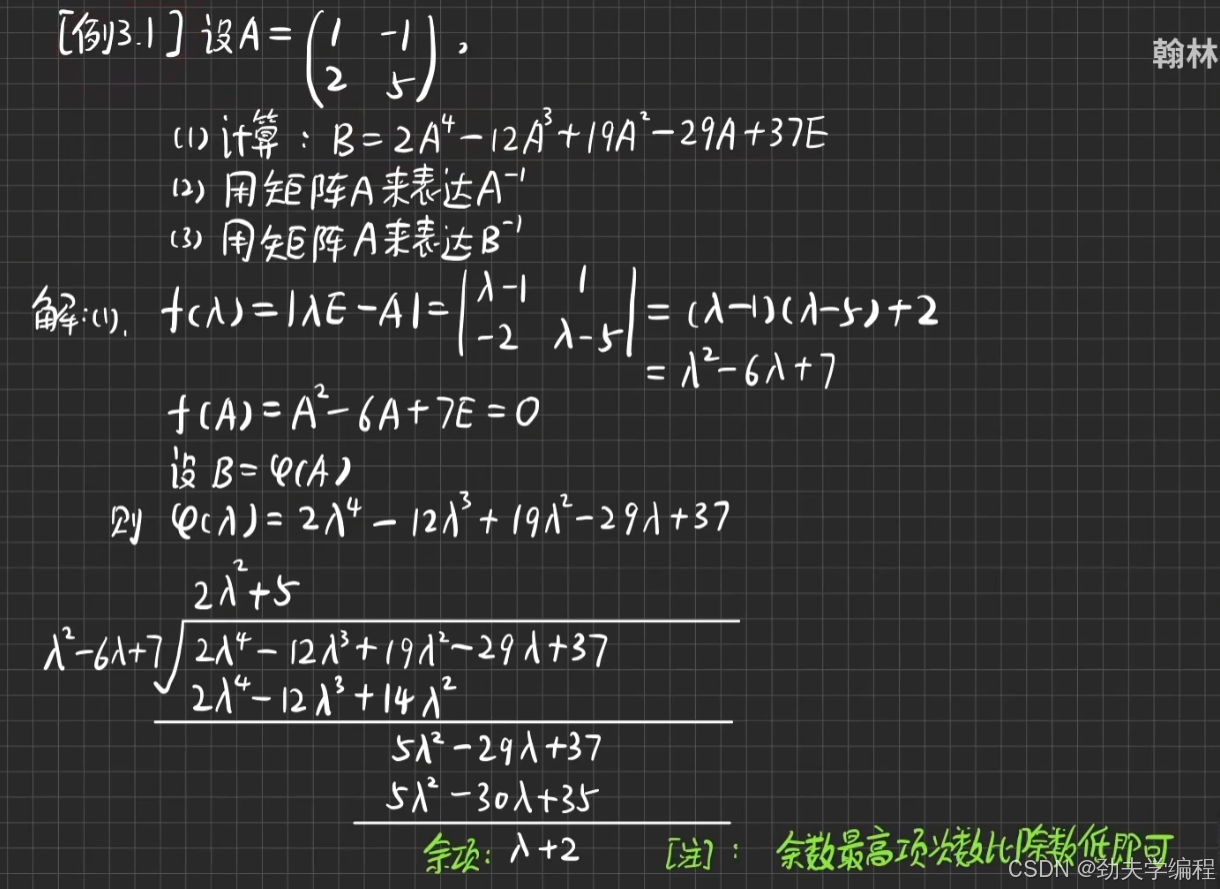 [例3.1] 设A = ( 1 -1
2 5 ) ,
翰林
(1) 计算 : B = 2A⁴ - 12A³ + 19A² - 29A + 37E
(2) 用矩阵A来表达A⁻¹
(3) 用矩阵A来表达B⁻¹
解:(1). f(λ) = |λE - A| = | λ-1 1
-2 λ-5 | = (λ-1)(λ-5)+2
= λ² - 6λ + 7
f(A) = A² - 6A + 7E = 0
设 B = φ(A)
则 φ(λ) = 2λ⁴ - 12λ³ + 19λ² - 29λ + 37
2λ² + 5
λ² - 6λ + 7 √ 2λ⁴ - 12λ³ + 19λ² - 29λ + 37
2λ⁴ - 12λ³ + 14λ²
5λ² - 29λ + 37
5λ² - 30λ + 35
余项: λ + 2 [注] : 余数最高项次数比除数低即可
CSDN @劲夫学编程